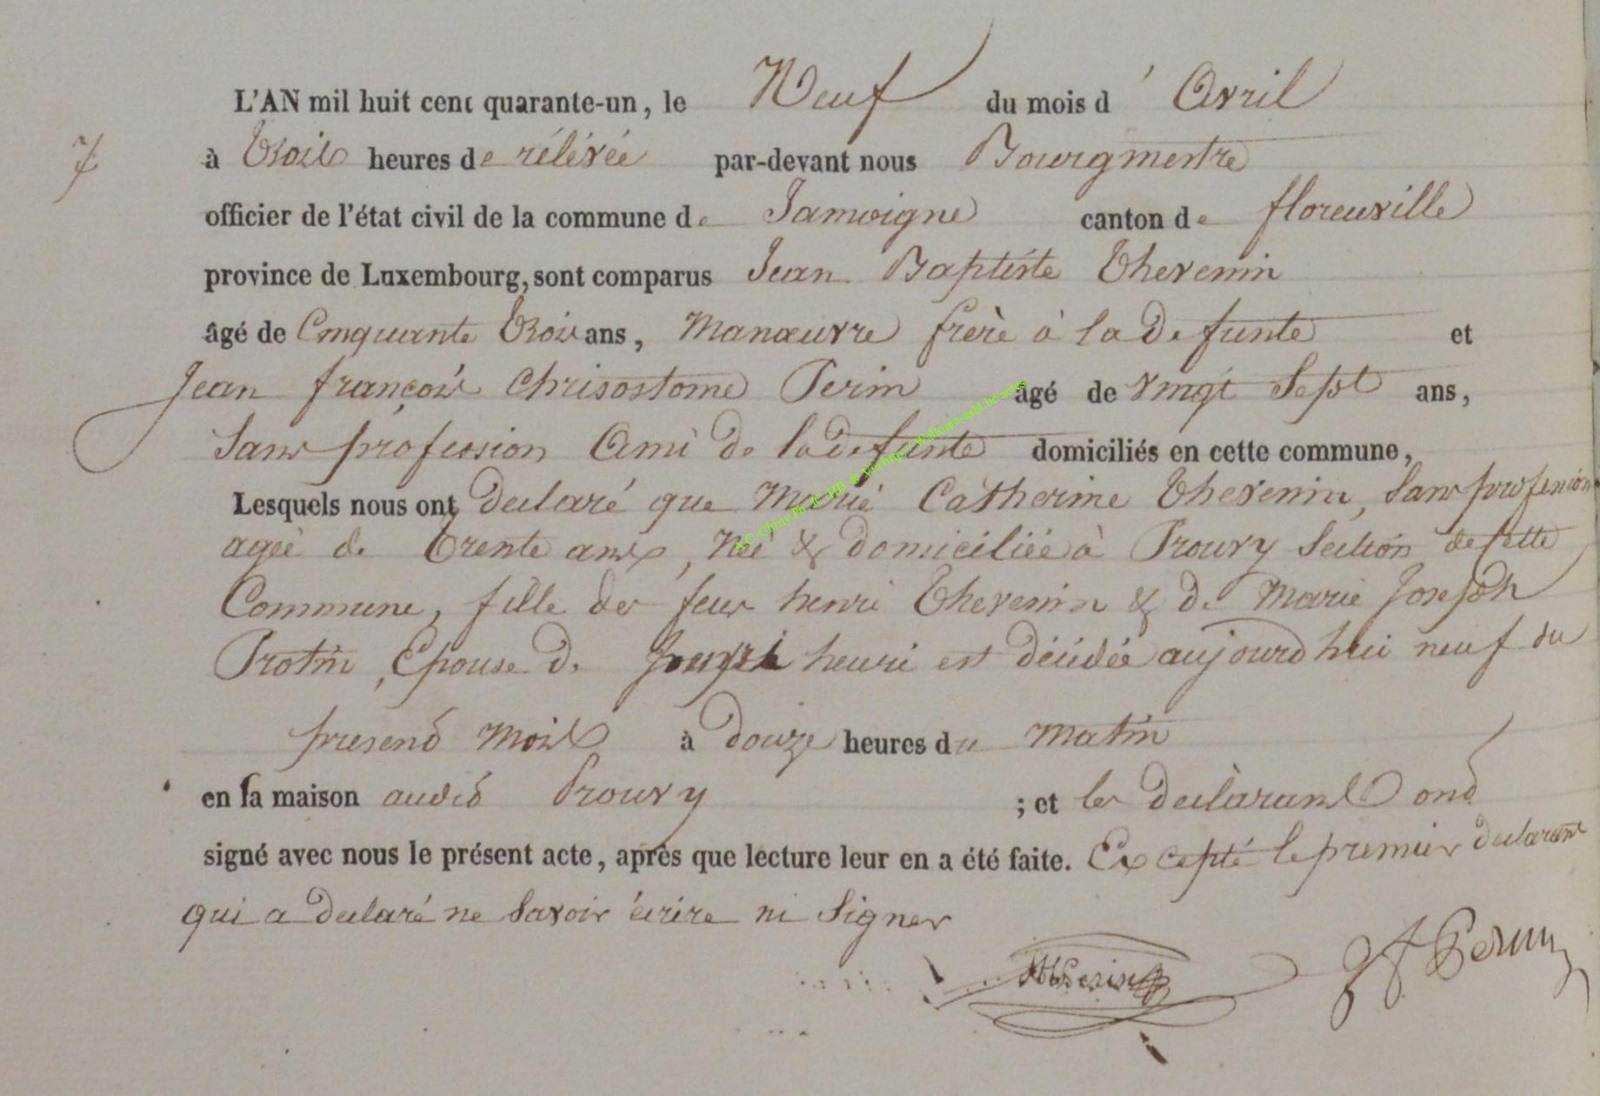 L'AN mil huit cent quarante-un, le Neuf du mois d' Avril
7
à Trois heures de rélévée par-devant nous Bourgmestre
officier de l'état civil de la commune de Jamoigne canton de florenville
province de Luxembourg, sont comparus Jean Baptiste Thevenin
âgé de Cinquante Trois ans, Manœuvre frère à la defunte et
Jean françois Chrisostome Perin âgé de vingt Sept ans,
Sans profession Ami de la defunte domiciliés en cette commune,
Lesquels nous ont declaré que Marie Catherine Thevenin, Sans profession
ageé de Trente ans, Neé & domiciliée à Prouvy Section de Cette
Commune, fille de feu henri Thevenin & de Marie Joseph
Protin, Epouse de henri est décédée aujourd hui neuf du
present Mois à douze heures du Matin
en sa maison audit Prouvy ; et les declarants ont
signé avec nous le présent acte, après que lecture leur en a été faite. Excepté le premier declarant
qui a declaré ne Savoir écrire ni Signer
Perin